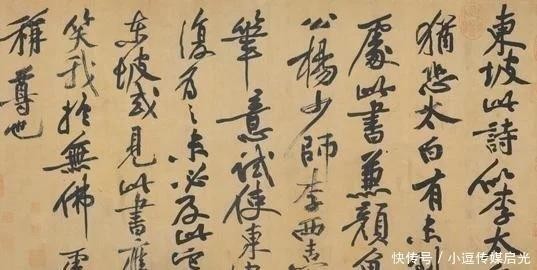 東坡此詩似李太
猶恐太白有未
處此書兼顏魯
公楊少師李西臺
筆意試使東坡
復為之未必及此它
東坡或見此書應
笑我於無佛處
稱尊也
快传号/小逗传媒启光